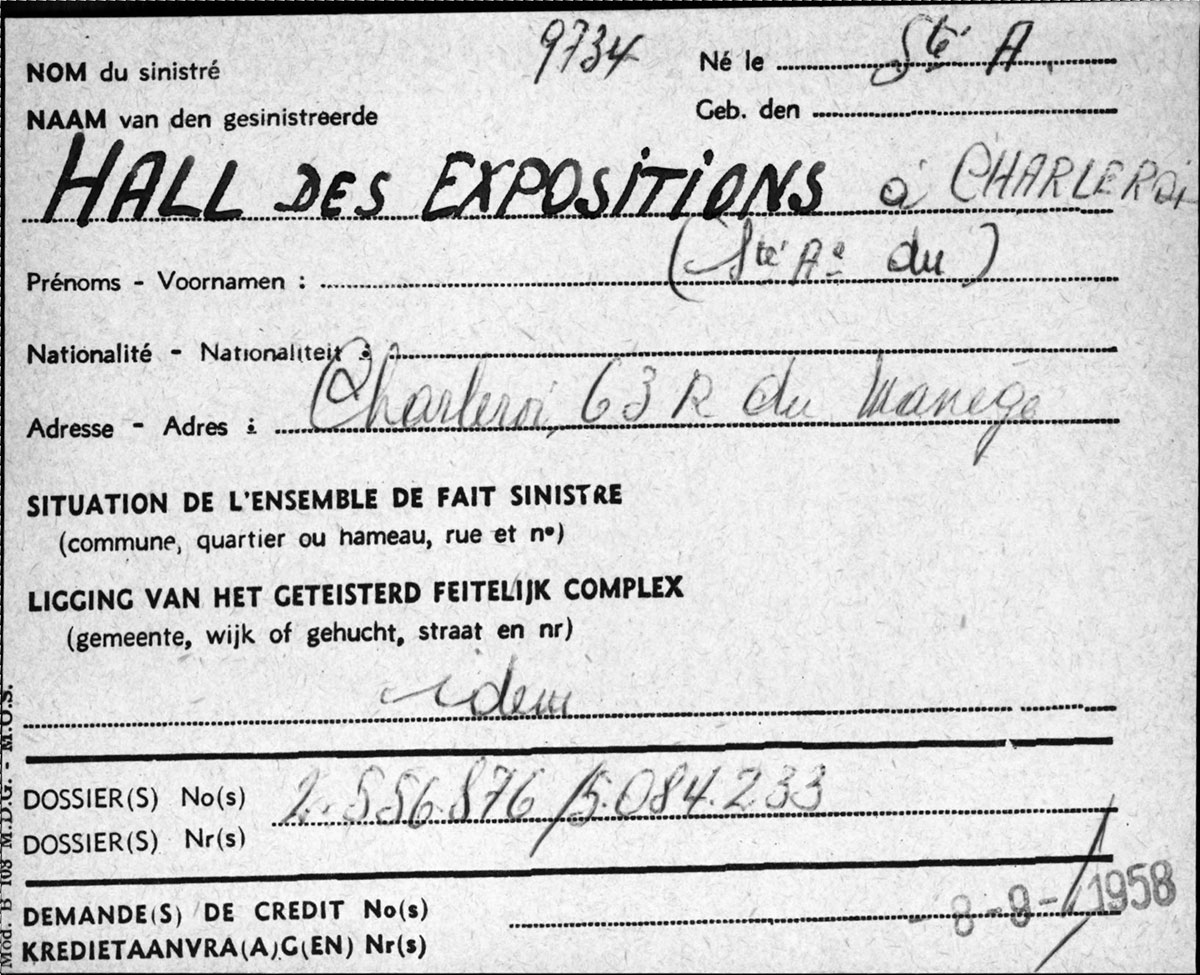 NOM du sinistré 9734 Né le Sté A
NAAM van den gesinistreerde Geb. den
HALL DES EXPOSITIONS à CHARLEROI
(Sté Ae du)
Prénoms - Voornamen :
Nationalité - Nationaliteit :
Adresse - Adres : Charleroi, 63 R du Manège
SITUATION DE L'ENSEMBLE DE FAIT SINISTRE
(commune, quartier ou hameau, rue et n°)
LIGGING VAN HET GETEISTERD FEITELIJK COMPLEX
(gemeente, wijk of gehucht, straat en nr)
idem
DOSSIER(S) No(s) 2.556.876/5.084.233
DOSSIER(S) Nr(s)
DEMANDE(S) DE CREDIT No(s) - 8-9-1958
KREDIETAANVRA(A)G(EN) Nr(s)
Mod. B 103 M.D.G. - M.O.S.